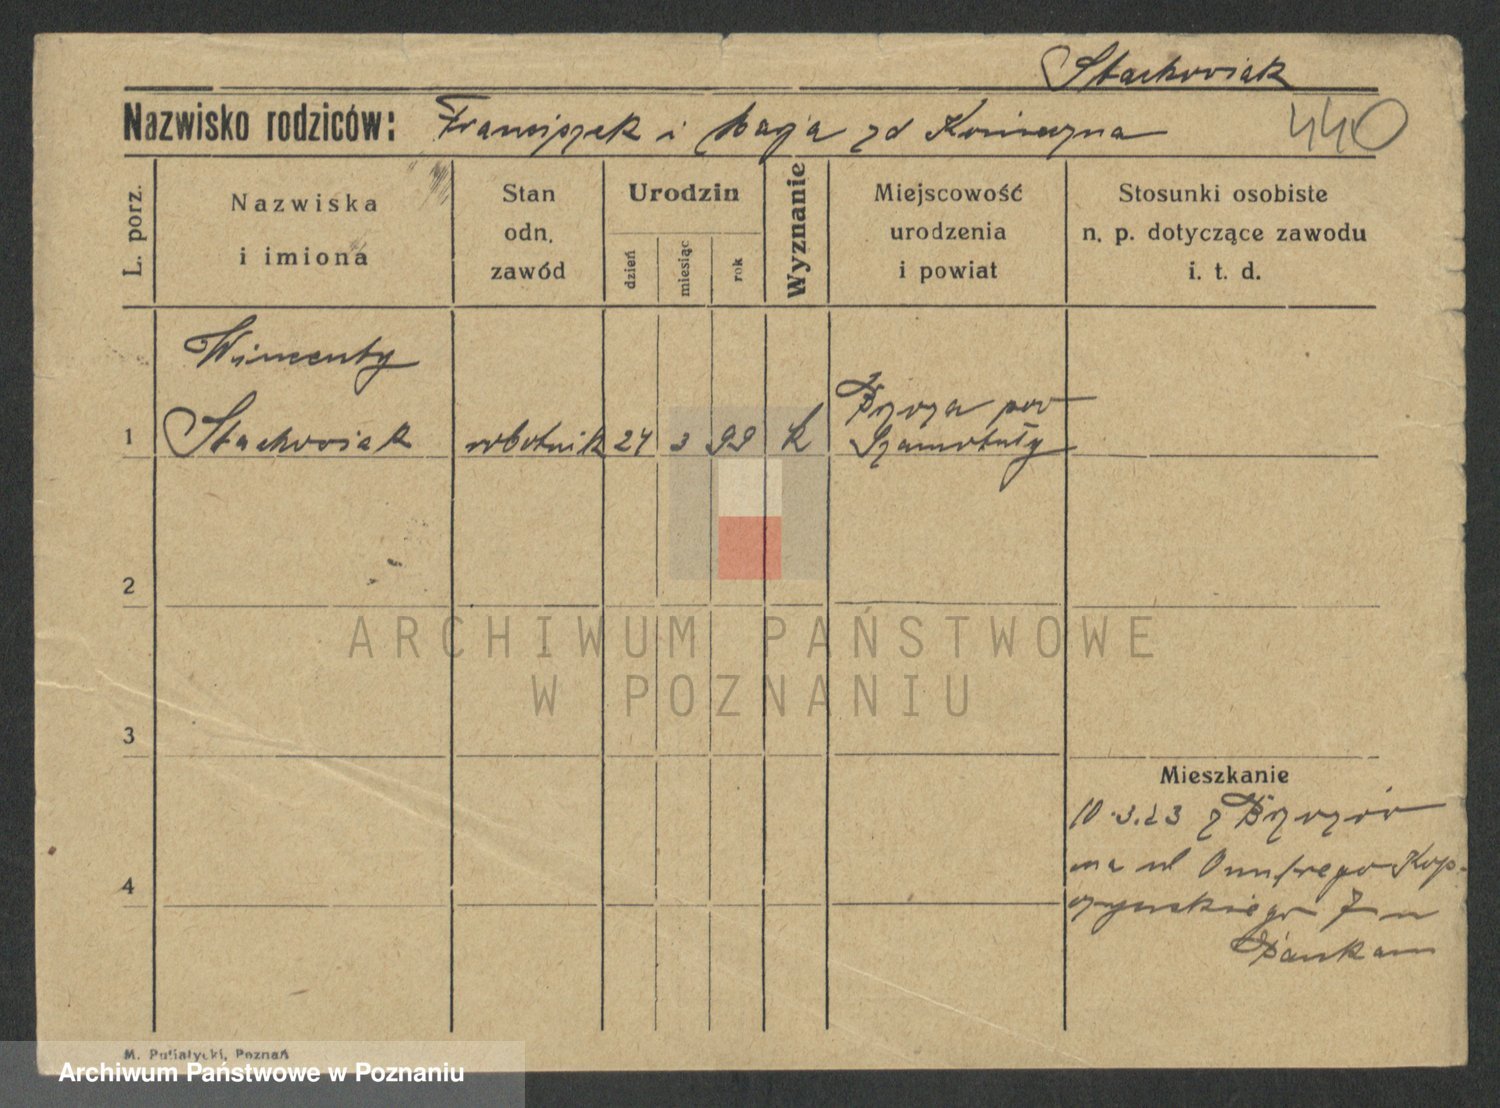 Stachowiak
Nazwisko rodziców: Franciszek i Marja zd Konieczna
440
L. porz.
Nazwiska
i imiona
Stan
odn.
zawód
Urodzin
dzień
miesiąc
rok
Wyznanie
Miejscowość
urodzenia
i powiat
Stosunki osobiste
n. p. dotyczące zawodu
i. t. d.
1
Wincenty
Stachowiak
robotnik
24
3
99
k
pow
Szamotuły
2
ARCHIWUM PAŃSTWOWE
W POZNANIU
3
Mieszkanie
10.3.23 z
na ul Onufrego Kop-
czyńskiego 7 u
4
M. Putiatycki, Poznań
Archiwum Państwowe w Poznaniu